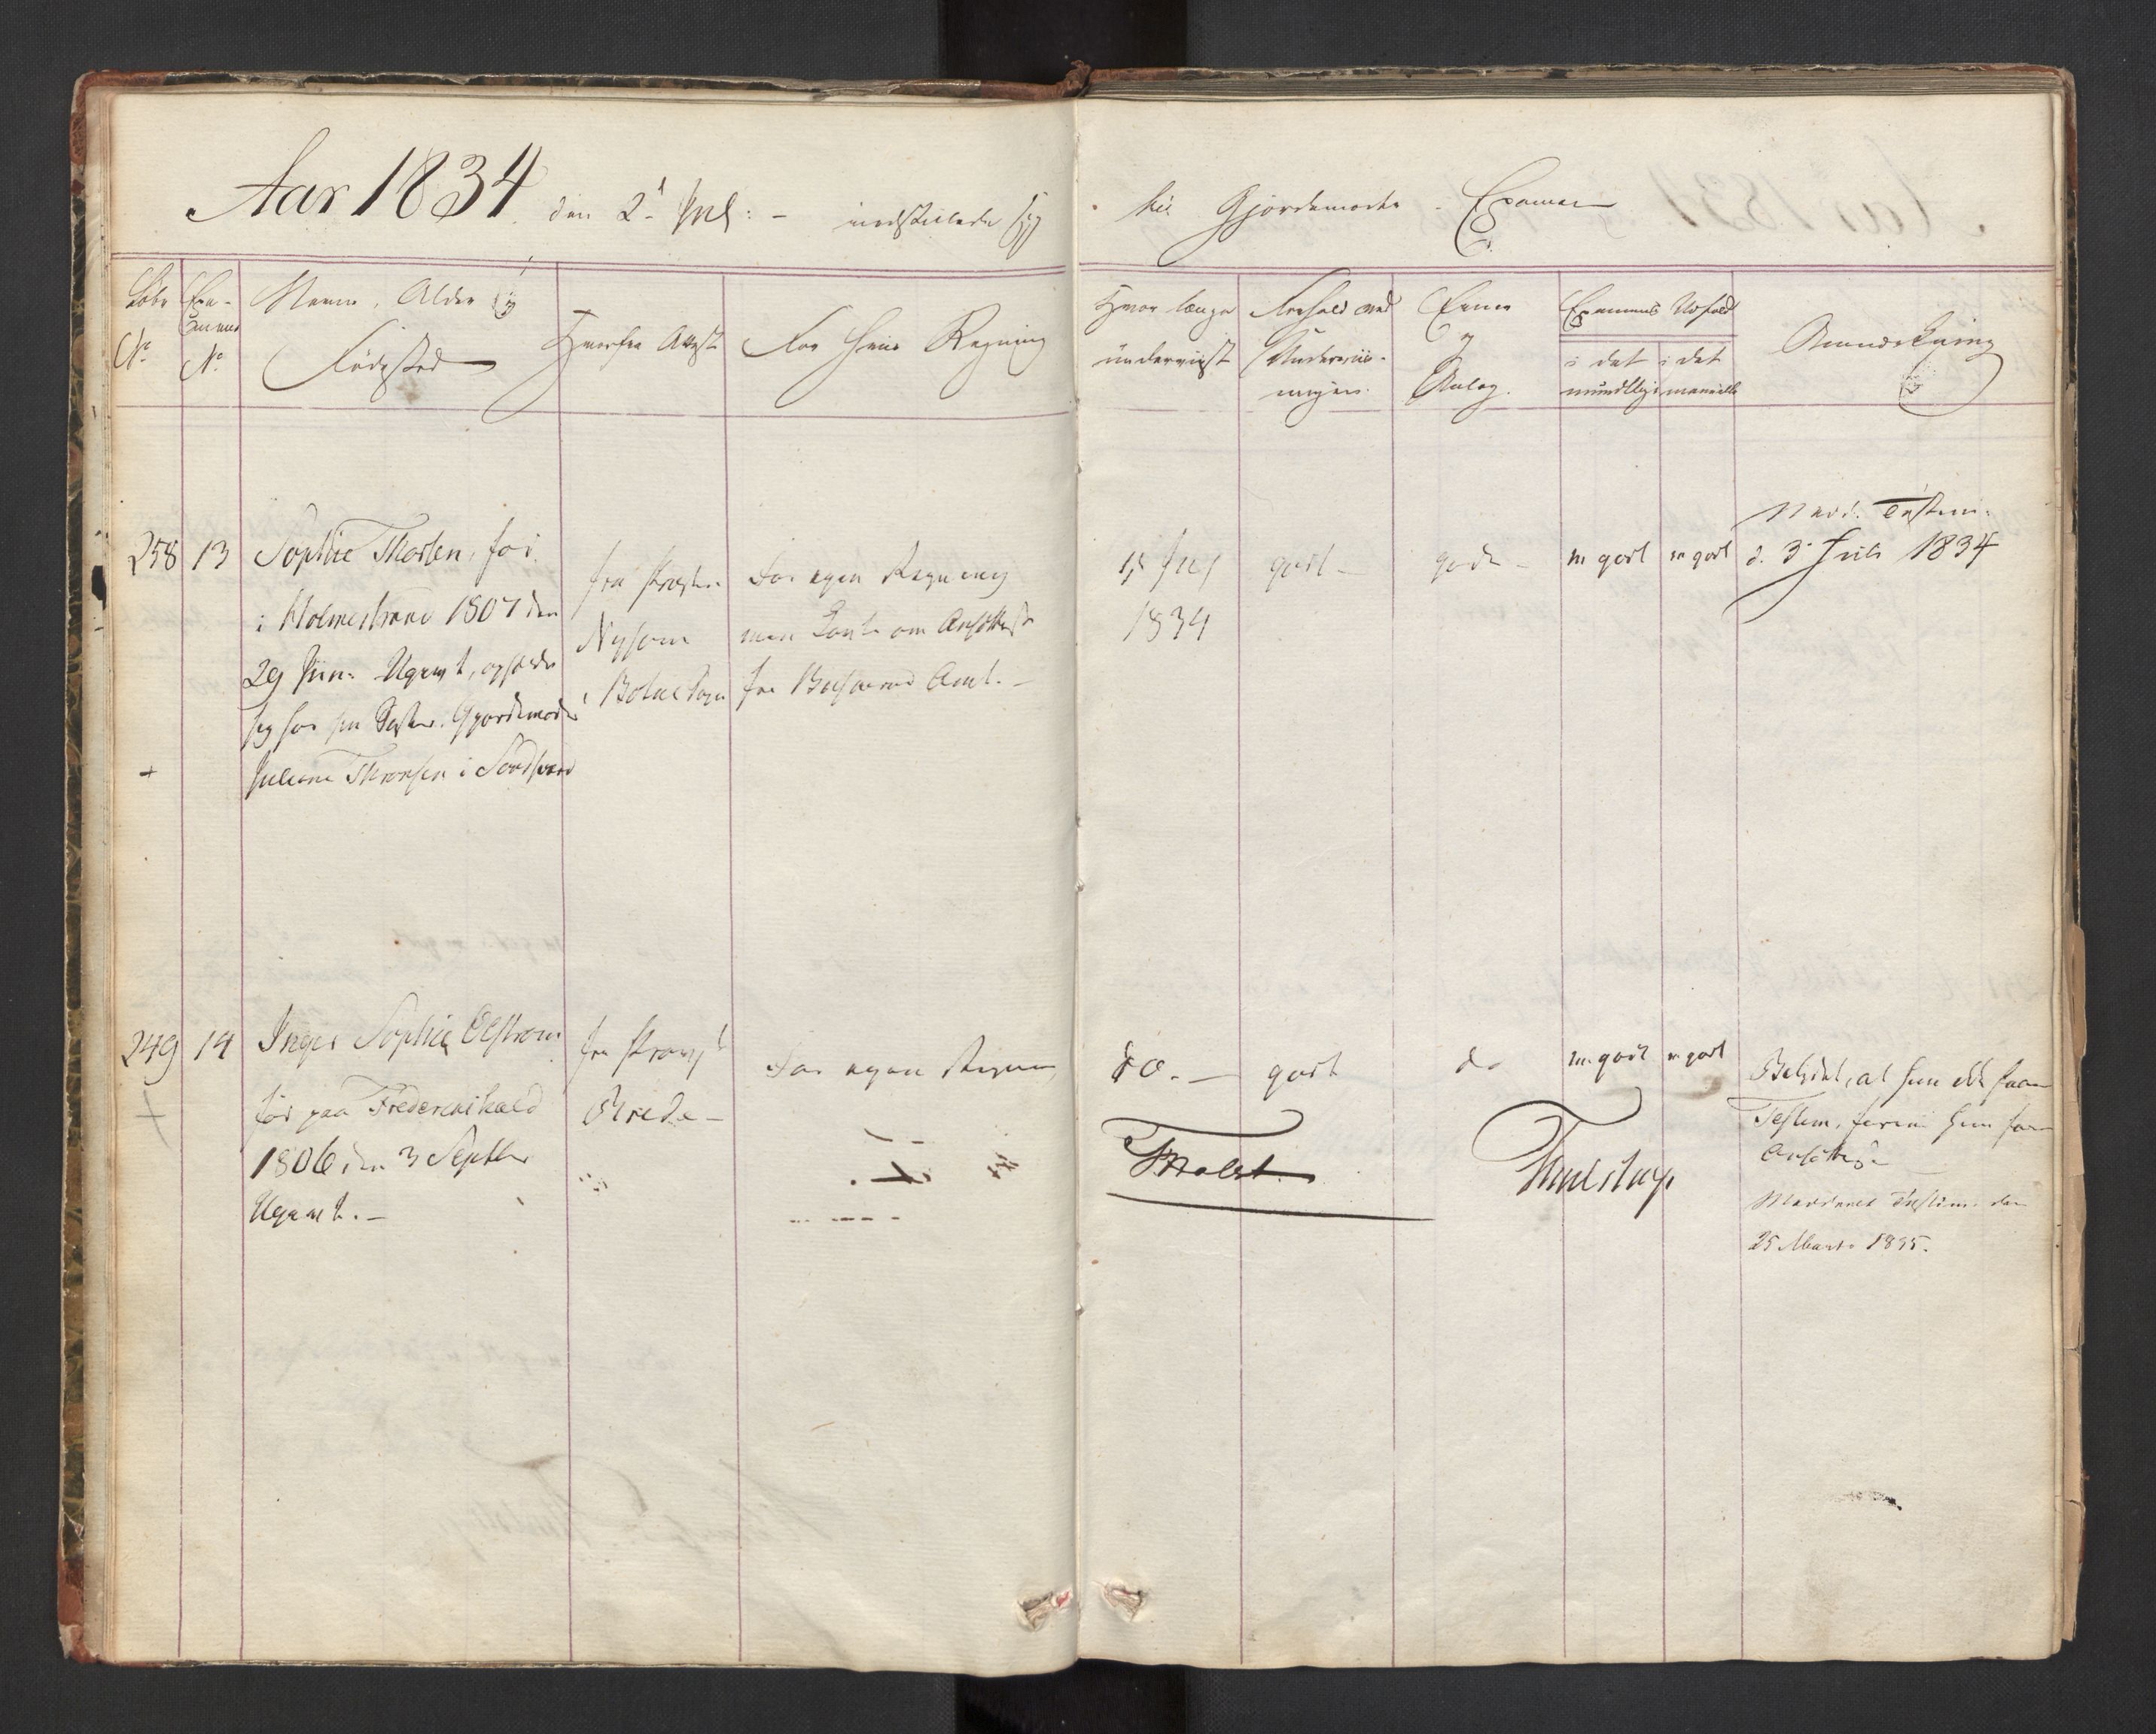 Aar 1834 den 2' Jul: - indstillede sig
til Gjordemoder - Examen
Løbe
No
Exa-
mens
No
Navn, Alder og
Fødested
Hvorfra Attest
For hvis Regning
Hvor længe
underviist
Forhold ved
Underviis-
ningen.
Evner
og
Anlæg.
Examens Udfald
i det
mundtlige
i det
manuelle
Anmærkning
258
13
Sophie Thorsen, fød
i Holmestrand 1807 den
29 Jun: Ugivt, opholder
sig hos sin Søster Gjordemoder
Juliane Thorsen i Sandsvær
fra Præsten
Nysom
i Botne Sogn
For egen Regning
men Løfte om Ansættelse
fra Buskerud Amt. -
1834
godt -
gode -
m godt
m godt
Medd. Testim.
d. 3' Juli 1834
+
249
14
Inger Sophie Elstrøm
fød paa Frederikshald
1806 den 3 Septbr
Ugivt. -
fra Provst
Grede -
For egen Regning
do. -
godt
do
m. godt
m godt
Betydet, at hun ikke faaer
Testim. førend hun faaer
Ansættelse
Meddeelt Testim. den
25 Marts 1835.
+
Holst.
Thulstrup